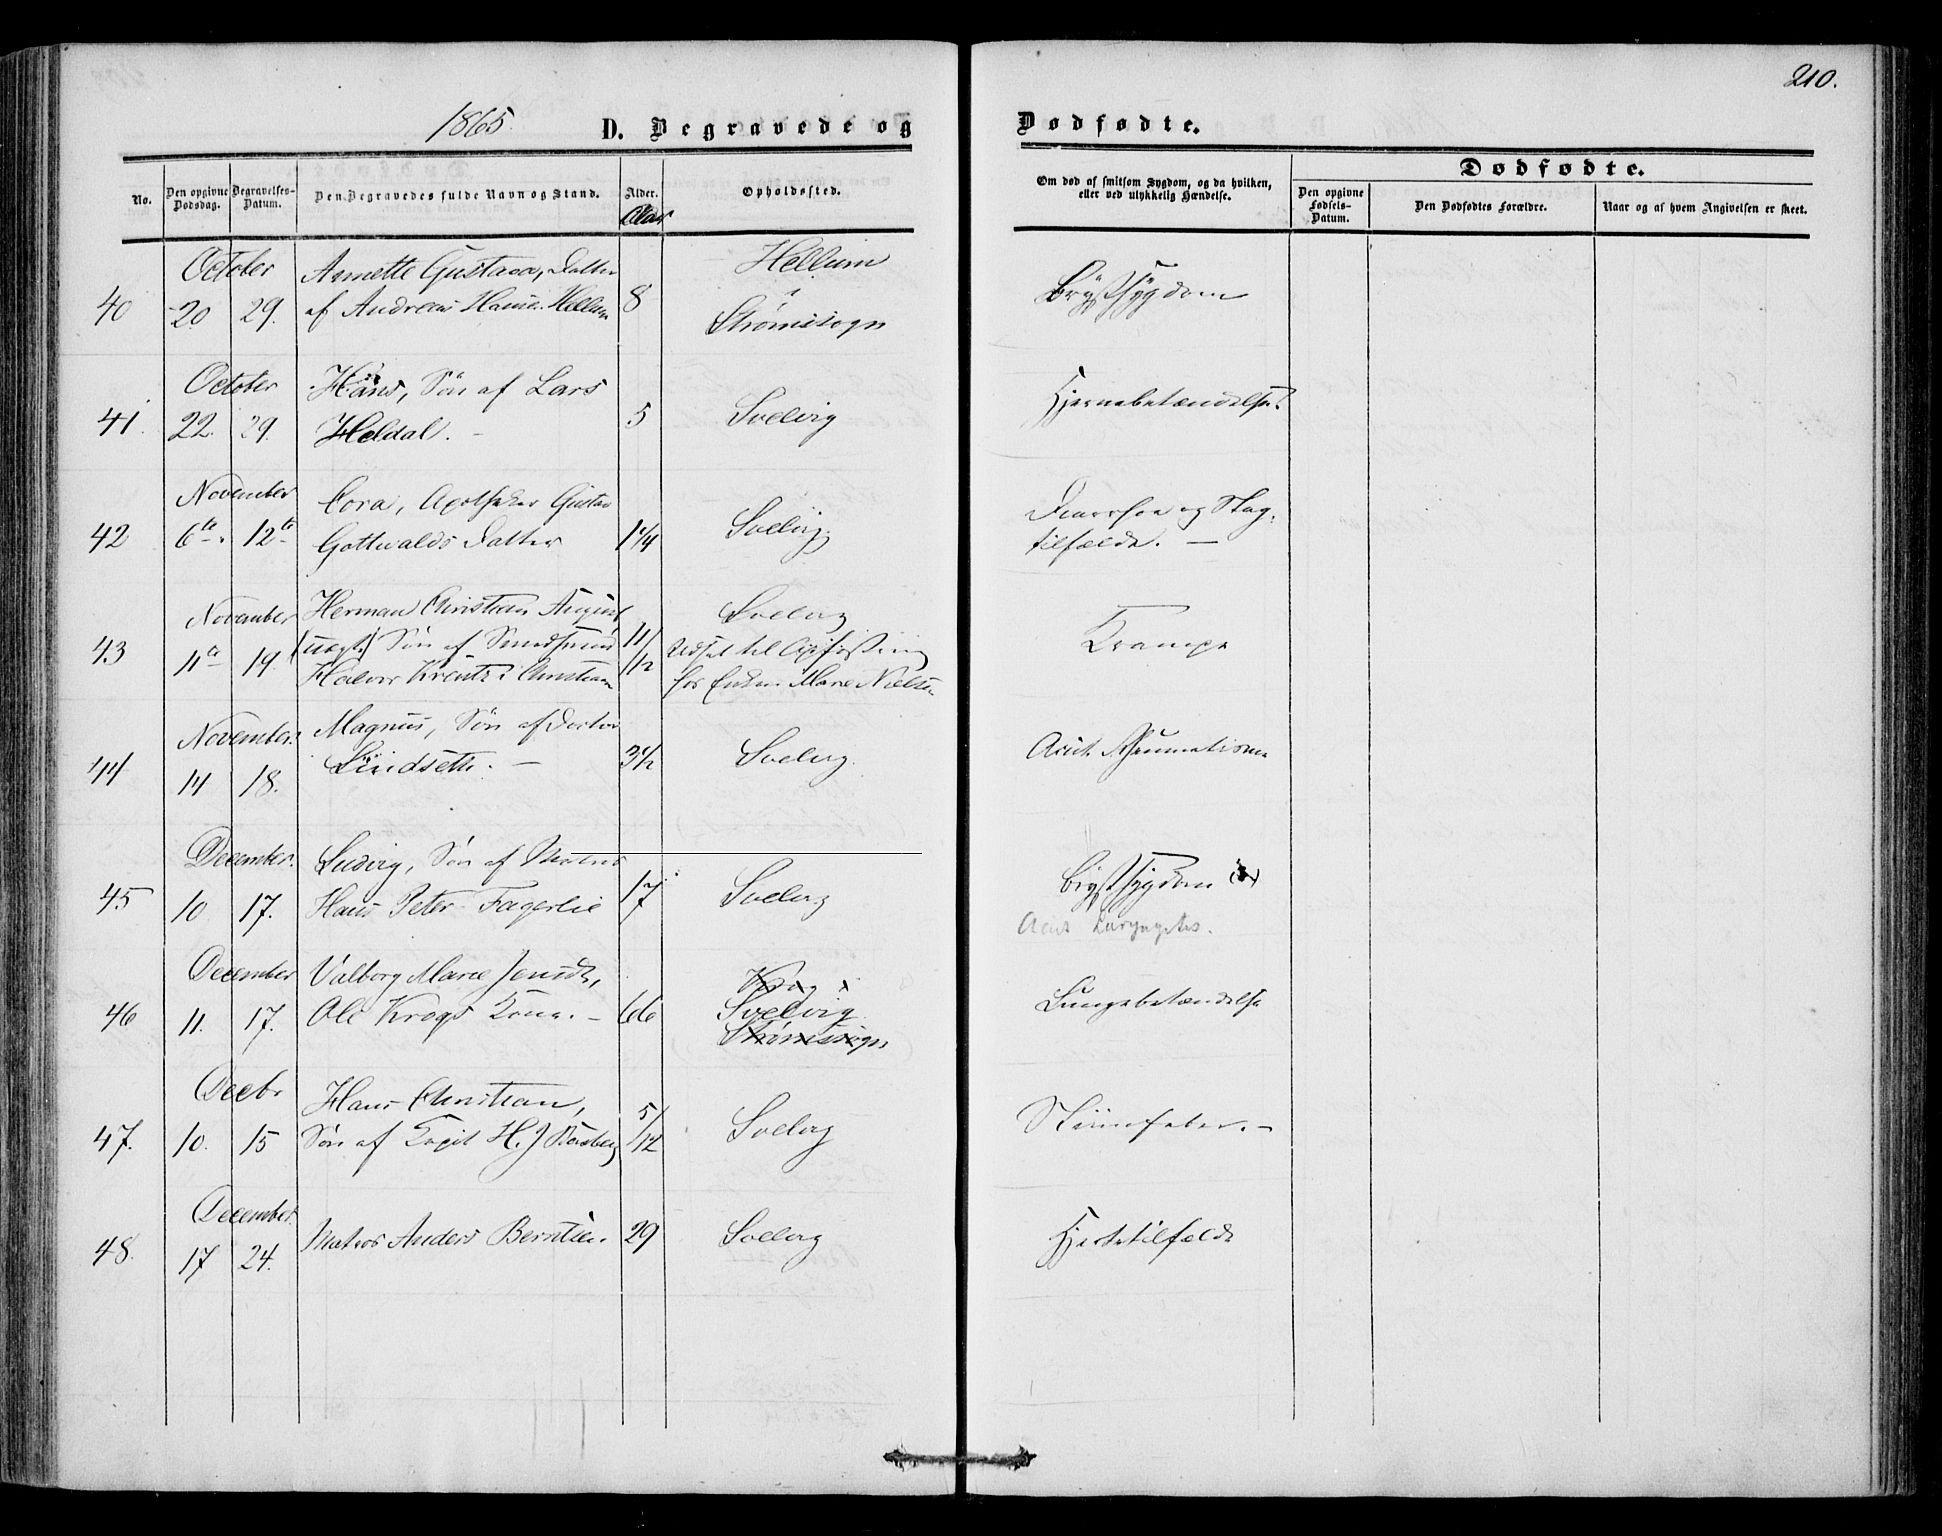 210.
1865. D. Begravede og Dødfødte.
No. Den opgivne Dødsdag. Begravelses-Datum. Den Begravedes fulde Navn og Stand. Alder. Opholdssted. Om død af smitsom Sygdom, og da hvilken, eller ved ulykkelig Hændelse.
Aar
Dødfødte.
Den opgivne Fødsels-Datum. Den Dødfødtes Forældre. Naar og af hvem Angivelsen er skeet.
October Annette Gustava, Datter Hellum
40 20 29. af Andreas Hansen Hellum 8 i Brystsygdom
Strømssogn
October Hans, Søn af Lars
41. 22. 29. Heldal. - 5 Svelvig Hjernebetændelse.
November Cora, Apotheker Gustav Diarrhoe og Slag-
42 6te 12te Gottwalds Datter 1 1/4 Svelvig tilfælde. -
November Herman Christian August Svelvig
43 11te 19. (uægte) Søn af 11/12 Udsat til Opfostring Krampe
Halvor i Christiania hos Enken Marie Nielsen
November. Magnus, Søn af Doctor
44 14 18. Lindseth. - 3 1/2 Svelvig. Acut Rheumatisme
December. Ludvig, Søn af Matros
45 10 17. Hans Peter Fagerlie 17 Svelvig Brystsygdom
Acut Laryngites.
December Valborg Marie Jensdtr, Krog i
46 11. 17. Ole Krogs Kone. - 66 Svelvig Lungebetændelse
Strømssogn
Decbr Hans Christian,
47. 10. 15 Søn af Capit H. J 5/12 Svelvig
December.
48. 17 24. Matros Anders Berntsen 29 Svelvig Hjertetilfælde